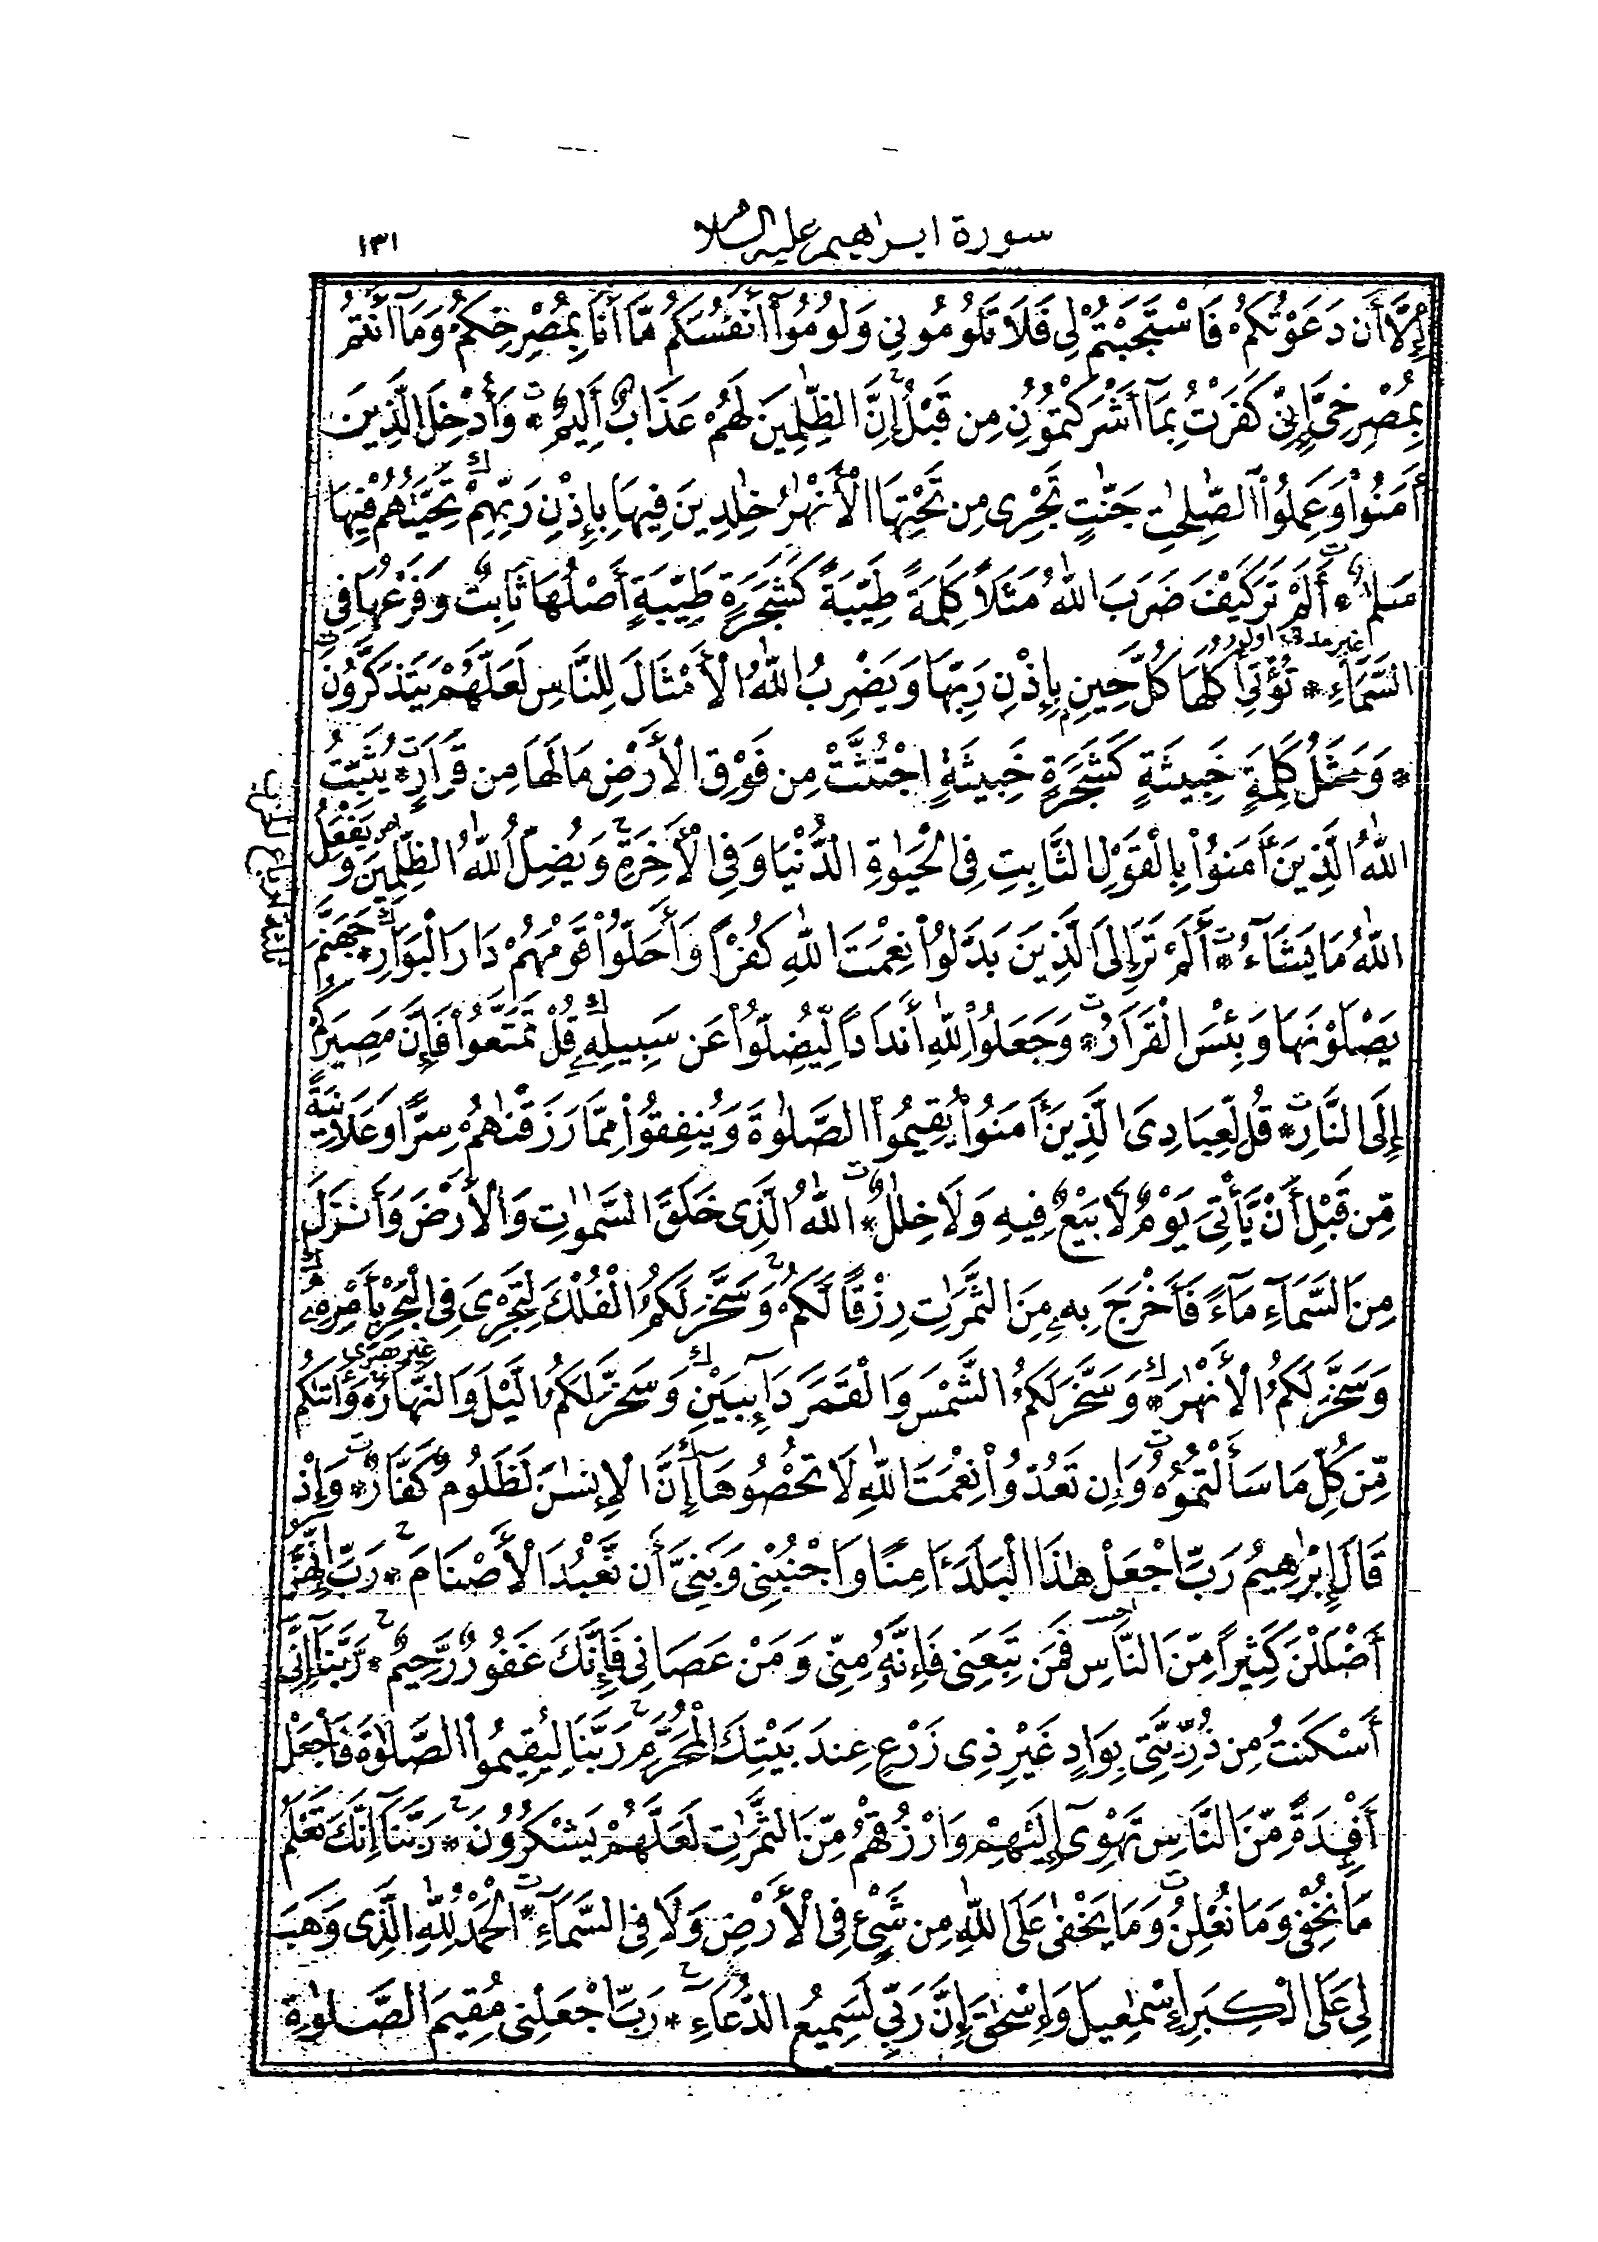 سورة ابراهيم عليه السلام
١٣١
إِلَّا أَن دَعَوْتُكُمْ فَاسْتَجَبْتُمْ لِى فَلَا تَلُومُونِى وَلُومُوٓا۟ أَنفُسَكُم مَّآ أَنَا۠ بِمُصْرِخِكُمْ وَمَآ أَنتُم
بِمُصْرِخِىَّ إِنِّى كَفَرْتُ بِمَآ أَشْرَكْتُمُونِ مِن قَبْلُ إِنَّ الظَّٰلِمِينَ لَهُمْ عَذَابٌ أَلِيمٌ * وَأُدْخِلَ الَّذِينَ
ءَامَنُوا۟ وَعَمِلُوا۟ الصَّٰلِحَٰتِ جَنَّٰتٍ تَجْرِى مِن تَحْتِهَا الْأَنْهَٰرُ خَٰلِدِينَ فِيهَا بِإِذْنِ رَبِّهِمْ تَحِيَّتُهُمْ فِيهَا
سَلَٰمٌ * أَلَمْ تَرَ كَيْفَ ضَرَبَ اللَّهُ مَثَلًا كَلِمَةً طَيِّبَةً كَشَجَرَةٍ طَيِّبَةٍ أَصْلُهَا ثَابِتٌ وَفَرْعُهَا فِى
السَّمَآءِ * تُؤْتِىٓ أُكُلَهَا كُلَّ حِينٍ بِإِذْنِ رَبِّهَا وَيَضْرِبُ اللَّهُ الْأَمْثَالَ لِلنَّاسِ لَعَلَّهُمْ يَتَذَكَّرُونَ
* وَمَثَلُ كَلِمَةٍ خَبِيثَةٍ كَشَجَرَةٍ خَبِيثَةٍ اجْتُثَّتْ مِن فَوْقِ الْأَرْضِ مَا لَهَا مِن قَرَارٍ * يُثَبِّتُ
اللَّهُ الَّذِينَ ءَامَنُوا۟ بِالْقَوْلِ الثَّابِتِ فِى الْحَيَوٰةِ الدُّنْيَا وَفِى الْأَخِرَةِ وَيُضِلُّ اللَّهُ الظَّٰلِمِينَ وَيَفْعَلُ
اللَّهُ مَا يَشَآءُ * أَلَمْ تَرَ إِلَى الَّذِينَ بَدَّلُوا۟ نِعْمَتَ اللَّهِ كُفْرًا وَأَحَلُّوا۟ قَوْمَهُمْ دَارَ الْبَوَارِ * جَهَنَّمَ
يَصْلَوْنَهَا وَبِئْسَ الْقَرَارُ * وَجَعَلُوا۟ لِلَّهِ أَندَادًا لِّيُضِلُّوا۟ عَن سَبِيلِهِۦ قُلْ تَمَتَّعُوا۟ فَإِنَّ مَصِيرَكُمْ
إِلَى النَّارِ * قُل لِّعِبَادِىَ الَّذِينَ ءَامَنُوا۟ يُقِيمُوا۟ الصَّلَوٰةَ وَيُنفِقُوا۟ مِمَّا رَزَقْنَٰهُمْ سِرًّا وَعَلَانِيَةً
مِّن قَبْلِ أَنْ يَّأْتِىَ يَوْمٌ لَّا بَيْعٌ فِيهِ وَلَا خِلَٰلٌ * اللَّهُ الَّذِى خَلَقَ السَّمَٰوَٰتِ وَالْأَرْضَ وَأَنزَلَ
مِنَ السَّمَآءِ مَآءً فَأَخْرَجَ بِهِۦ مِنَ الثَّمَرَٰتِ رِزْقًا لَّكُمْ وَسَخَّرَ لَكُمُ الْفُلْكَ لِتَجْرِىَ فِى الْبَحْرِ بِأَمْرِهِۦ
وَسَخَّرَ لَكُمُ الْأَنْهَٰرَ * وَسَخَّرَ لَكُمُ الشَّمْسَ وَالْقَمَرَ دَآئِبَيْنِ وَسَخَّرَ لَكُمُ الَّيْلَ وَالنَّهَارَ * وَءَاتَىٰكُم
مِّن كُلِّ مَا سَأَلْتُمُوهُ وَإِن تَعُدُّوا۟ نِعْمَتَ اللَّهِ لَا تُحْصُوهَآ إِنَّ الْإِنسَٰنَ لَظَلُومٌ كَفَّارٌ * وَإِذْ
قَالَ إِبْرَٰهِيمُ رَبِّ اجْعَلْ هَٰذَا الْبَلَدَ ءَامِنًا وَاجْنُبْنِى وَبَنِىَّ أَن نَّعْبُدَ الْأَصْنَامَ * رَبِّ إِنَّهُنَّ
أَضْلَلْنَ كَثِيرًا مِّنَ النَّاسِ فَمَن تَبِعَنِى فَإِنَّهُۥ مِنِّى وَمَنْ عَصَانِى فَإِنَّكَ غَفُورٌ رَّحِيمٌ * رَبَّنَآ إِنِّىٓ
أَسْكَنتُ مِن ذُرِّيَّتِى بِوَادٍ غَيْرِ ذِى زَرْعٍ عِندَ بَيْتِكَ الْمُحَرَّمِ رَبَّنَا لِيُقِيمُوا۟ الصَّلَوٰةَ فَاجْعَلْ
أَفْـِٔدَةً مِّنَ النَّاسِ تَهْوِىٓ إِلَيْهِمْ وَارْزُقْهُم مِّنَ الثَّمَرَٰتِ لَعَلَّهُمْ يَشْكُرُونَ * رَبَّنَآ إِنَّكَ تَعْلَمُ
مَا نُخْفِى وَمَا نُعْلِنُ وَمَا يَخْفَىٰ عَلَى اللَّهِ مِن شَىْءٍ فِى الْأَرْضِ وَلَا فِى السَّمَآءِ * الْحَمْدُ لِلَّهِ الَّذِى وَهَبَ
لِى عَلَى الْكِبَرِ إِسْمَٰعِيلَ وَإِسْحَٰقَ إِنَّ رَبِّى لَسَمِيعُ الدُّعَآءِ * رَبِّ اجْعَلْنِى مُقِيمَ الصَّلَوٰةِ